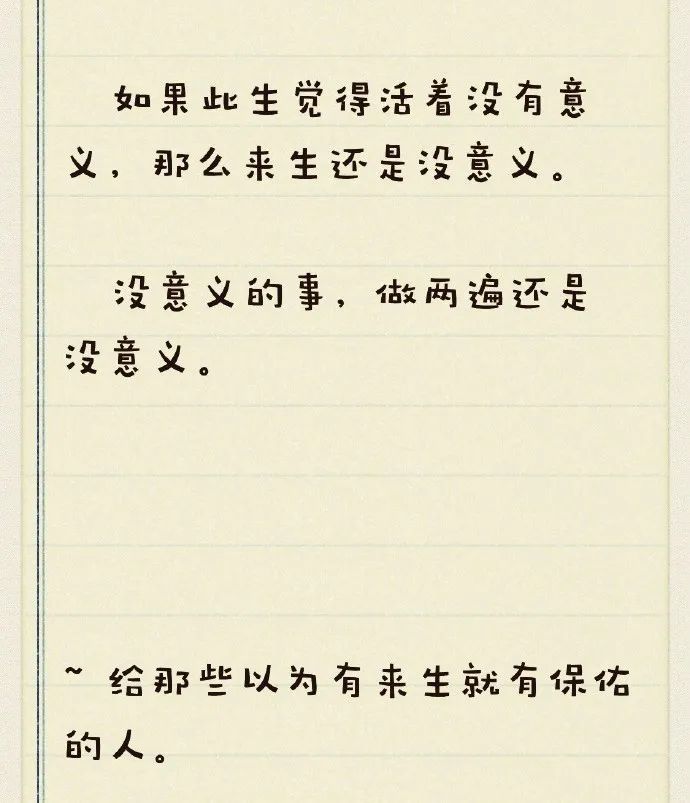 如果此生觉得活着没有意
义，那么来生还是没意义。
没意义的事，做两遍还是
没意义。
~ 给那些以为有来生就有保佑
的人。